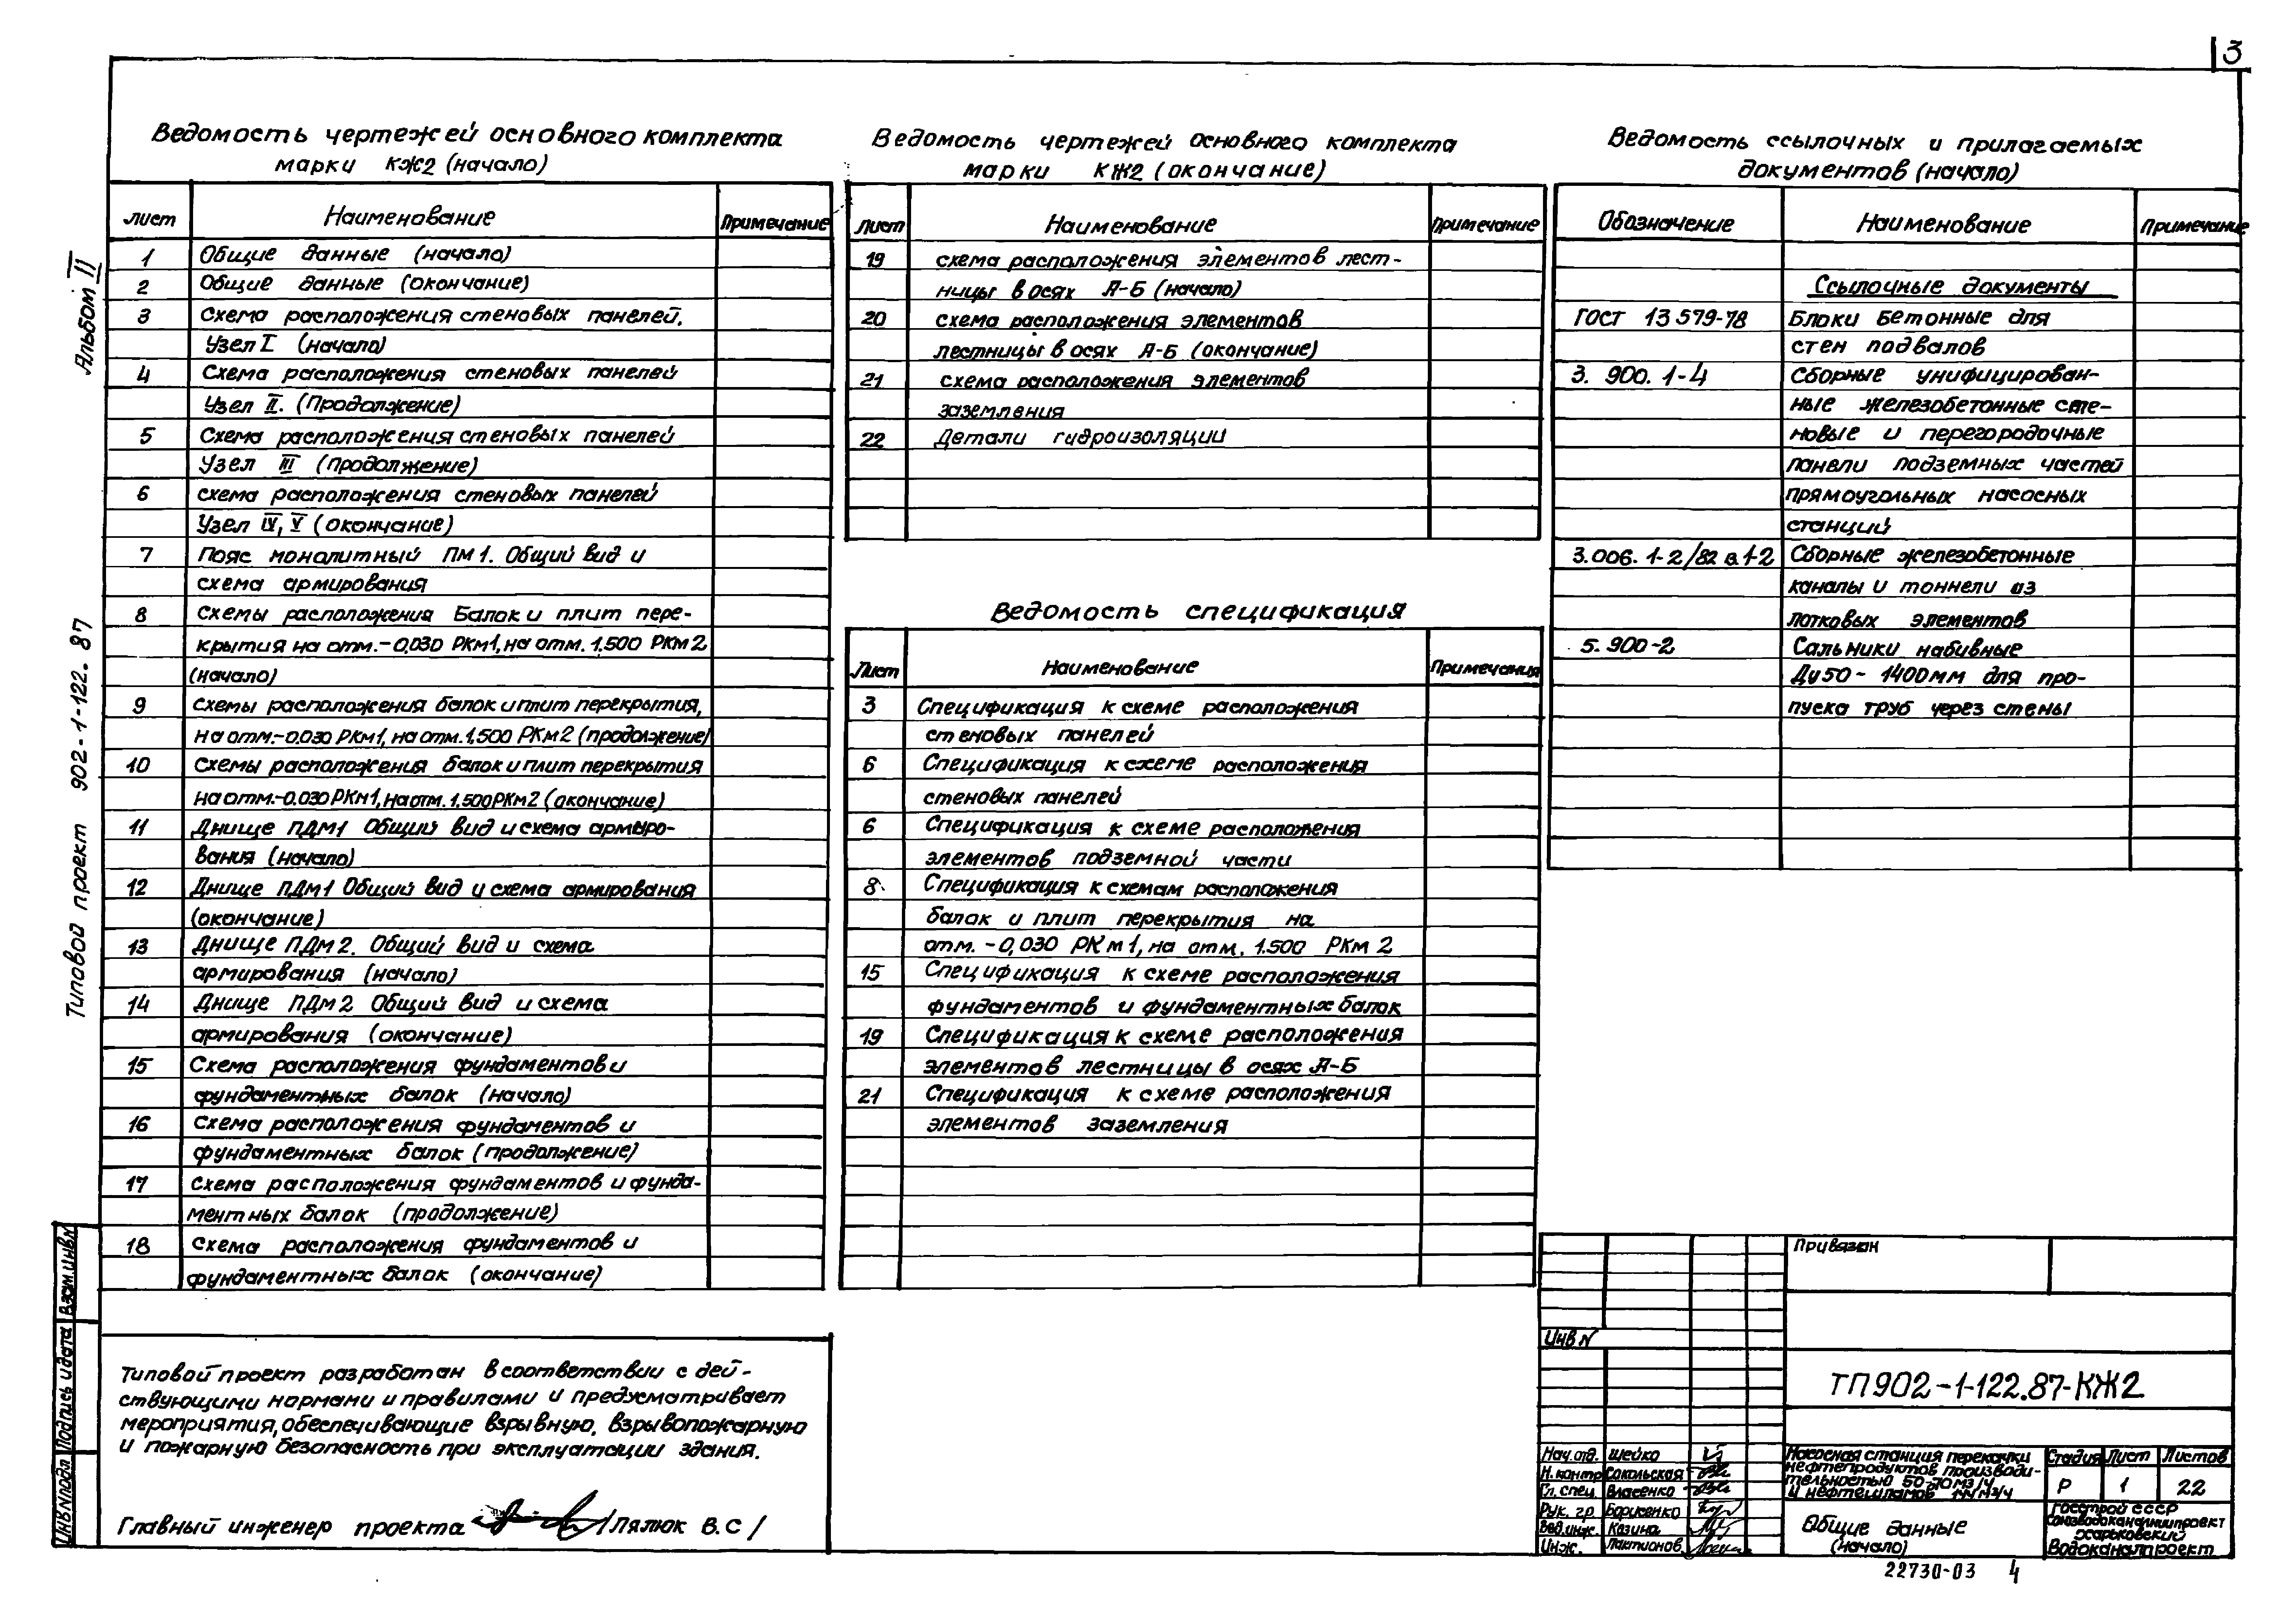 3
Ведомость чертежей основного комплекта
марки КЖ2 (начало)
Лист Наименование Примечание
1 Общие данные (начало)
2 Общие данные (окончание)
3 Схема расположения стеновых панелей.
Узел I (начало)
4 Схема расположения стеновых панелей
Узел II. (Продолжение)
5 Схема расположения стеновых панелей
Узел III (продолжение)
6 схема расположения стеновых панелей
Узел IV, V (окончание)
7 Пояс монолитный ПМ1. Общий вид и
схема армирования
8 Схемы расположения балок и плит пере-
крытия на отм.-0,030 РКм1, на отм. 1.500 РКм2
(начало)
9 Схемы расположения балок и плит перекрытия,
на отм.-0,030 РКм1, на отм. 1,500 РКм2 (продолжение)
10 Схемы расположения балок и плит перекрытия
на отм.-0.030 РКм1, на отм. 1.500 РКм2 (окончание)
11 Днище ПДм1 Общий вид и схема армиро-
вания (начало)
12 Днище ПДм1 Общий вид и схема армирования
(окончание)
13 Днище ПДм2. Общий вид и схема
армирования (начало)
14 Днище ПДм2 Общий вид и схема
армирования (окончание)
15 Схема расположения фундаментов и
фундаментных балок (начало)
16 Схема расположения фундаментов и
фундаментных балок (продолжение)
17 Схема расположения фундаментов и фунда-
ментных балок (продолжение)
18 Схема расположения фундаментов и
фундаментных балок (окончание)
Типовой проект разработан в соответствии с дей-
ствующими нормами и правилами и предусматривает
мероприятия, обеспечивающие взрывную, взрывопожарную
и пожарную безопасность при эксплуатации здания.
Главный инженер проекта /Лялюк В.С/
Ведомость чертежей основного комплекта
марки КЖ2 (окончание)
Лист Наименование Примечание
19 схема расположения элементов лест-
ницы в осях А-Б (начало)
20 схема расположения элементов
лестницы в осях А-Б (окончание)
21 схема расположения элементов
заземления
22 Детали гидроизоляции
Ведомость спецификация
Лист Наименование Примечания
3 Спецификация к схеме расположения
стеновых панелей
6 Спецификация к схеме расположения
стеновых панелей
6 Спецификация к схеме расположения
элементов подземной части
8 Спецификация к схемам расположения
балок и плит перекрытия на
отм. -0,030 РКм1, на отм. 1.500 РКм2
15 Спецификация к схеме расположения
фундаментов и фундаментных балок
19 Спецификация к схеме расположения
элементов лестницы в осях А-Б
21 Спецификация к схеме расположения
элементов заземления
Ведомость ссылочных и прилагаемых
документов (начало)
Обозначение Наименование Примечание
Ссылочные документы
ГОСТ 13579-78 Блоки бетонные для
стен подвалов
3.900.1-4 Сборные унифицирован-
ные железобетонные сте-
новые и перегородочные
панели подземных частей
прямоугольных насосных
станций
3.006.1-2/82 в.1-2 Сборные железобетонные
каналы и тоннели из
лотковых элементов
5.900-2 Сальники набивные
Ду50-1400мм для про-
пуска труб через стены
Привязан
Инв N
ТП902-1-122.87-КЖ2
Нач.отд. Шейко
Н.контр Сокольская
Гл.спец. Власенко
Рук. гр. Борисенко
Вед.инж. Козина
Инж. Лактионов
Насосная станция перекачки
нефтепродуктов производи-
тельностью 50-70м3/ч
и нефтешламов м3/ч
Стадия Лист Листов
Р 1 22
Общие данные
(начало)
Госстрой СССР
Союзводоканалниипроект
Харьковский
Водоканалпроект
22730-03 4
Альбом II
Типовой проект 902-1-122.87
Взам.инв.N
Подпись и дата
Инв N подл